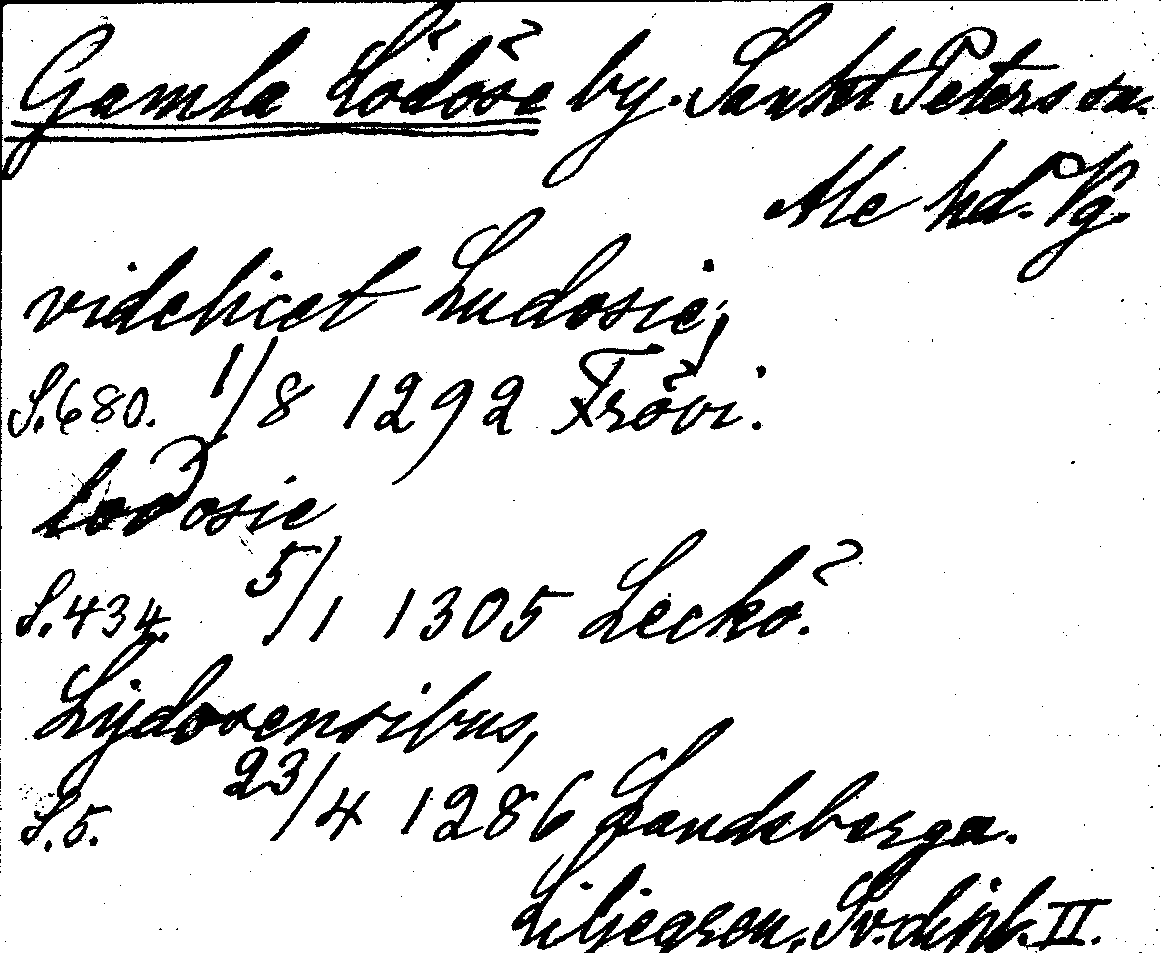 Gamla Lödöse by. Sankt Peters sn.
Ale hd. Vg.
videlicet Ludosie;
S.680. 1/8 1292 Frövi.
Lodosie
S.434. 5/1 1305 Leckö.
Lydosensibus,
S.5. 23/4 1286 Landeberga.
Liljegren, Sv. dipl. II.